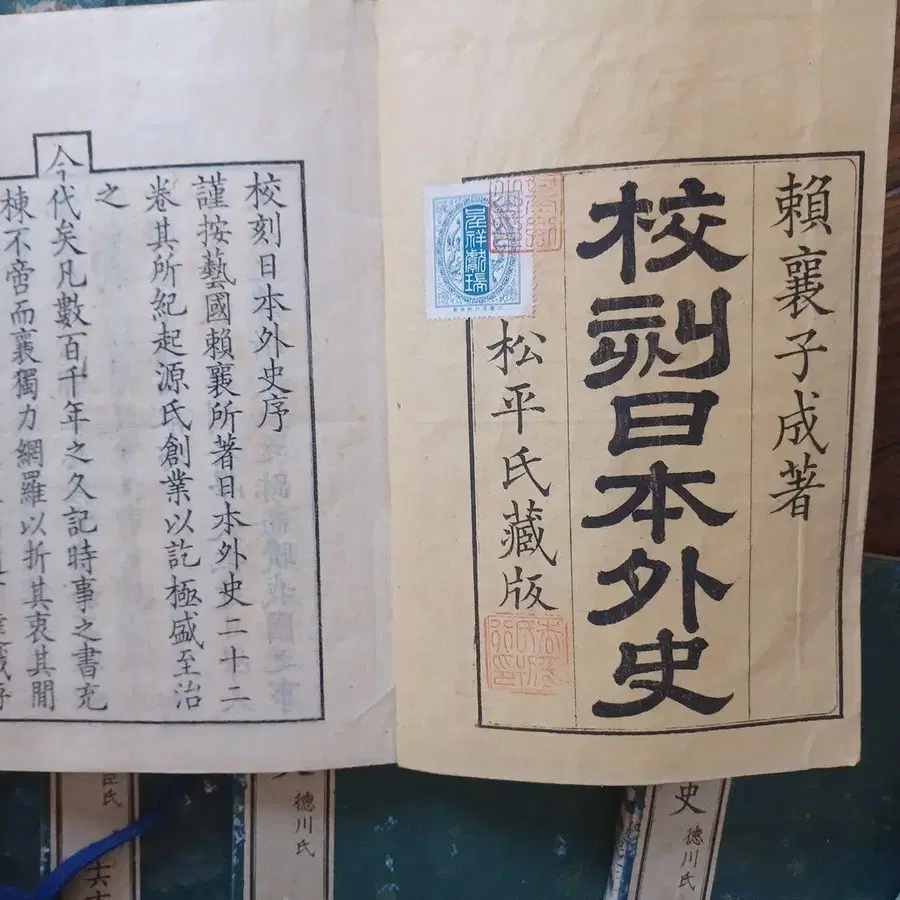 賴襄子成著
校刻日本外史
松平氏藏版
呈祥獻瑞
校刻日本外史序
謹按藝國賴襄所著日本外史二十二
卷其所紀起源氏創業以訖極盛至治
之
今代矣凡數百千年之久記時事之書充
棟不啻而襄獨力網羅以折其衷其間
史 德川氏
德川氏
臣氏